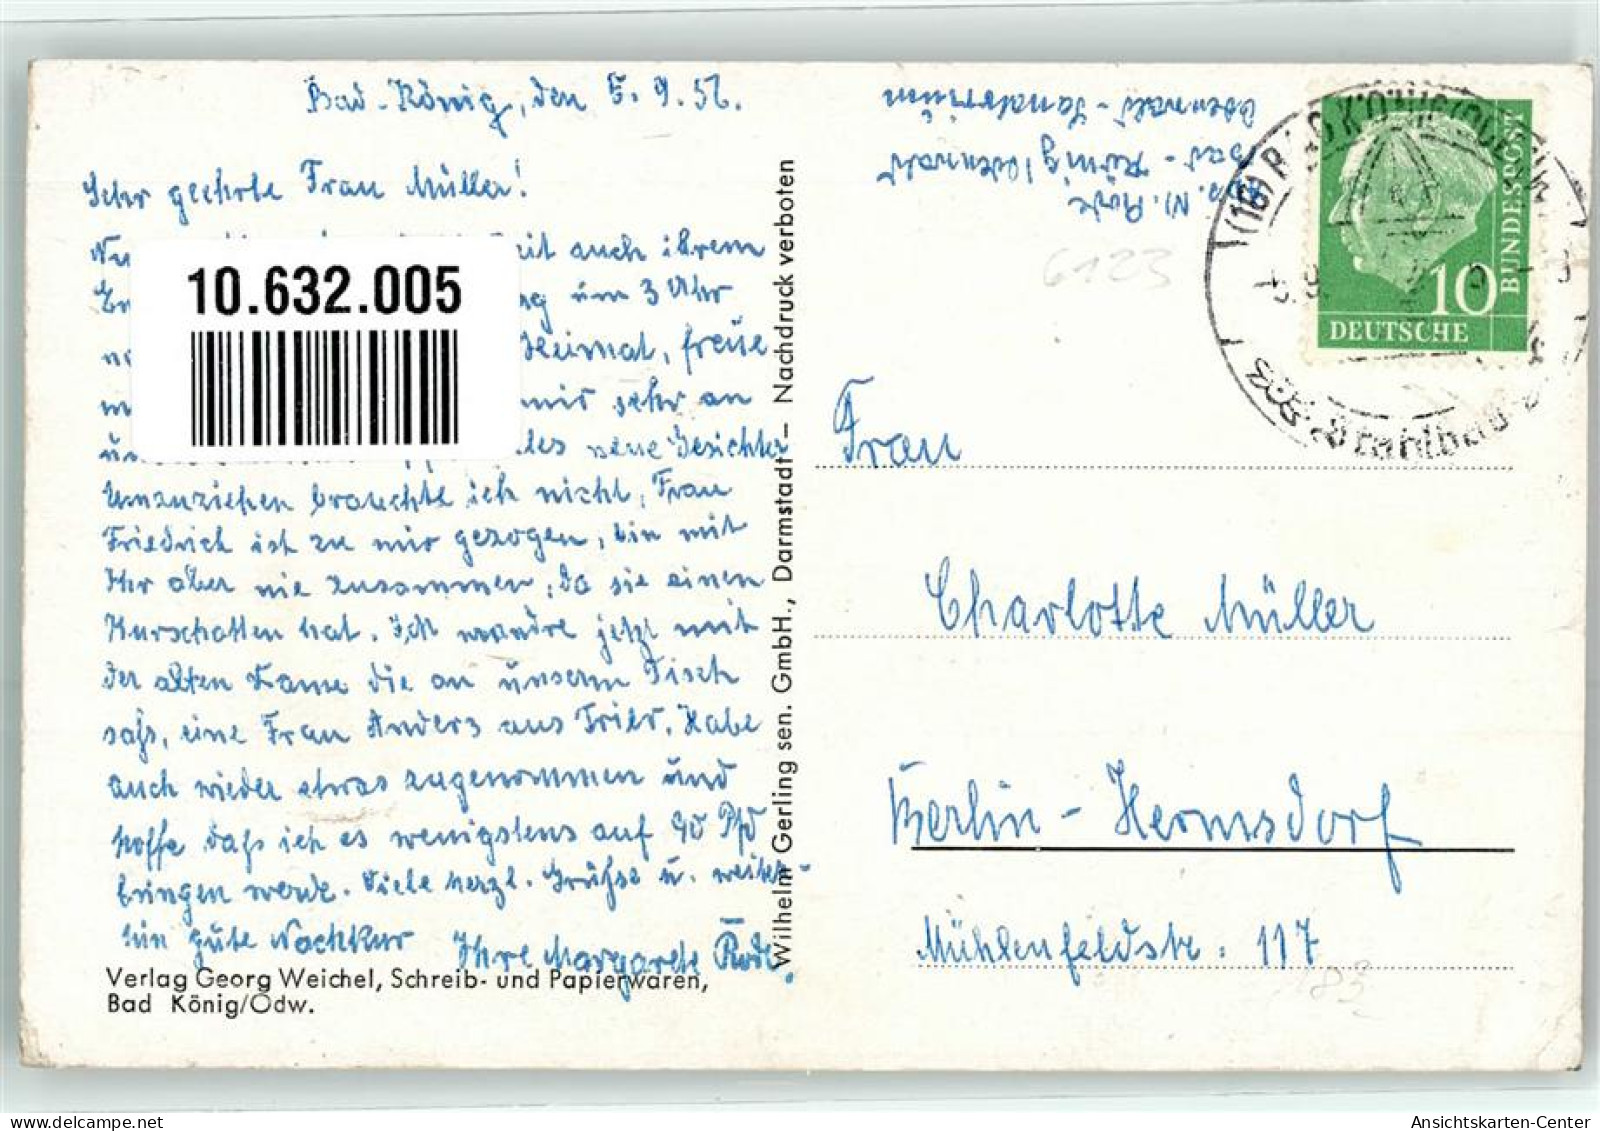 Bad-König, den 5.9.56.
Sehr geehrte Frau Müller!
auch ihrem
um 3 Uhr
Heimat, freue
mir sehr an
neue Gesichter
Umzuziehen brauchte ich nicht, Frau
Friedrich ist zu mir gezogen, bin mit
Ihr aber nie zusammen, da sie einen
Kurschatten hat. Ich wandre jetzt mit
der alten Dame die an unserm Tisch
saß, eine Frau Anders aus Trier. Habe
auch wieder etwas zugenommen und
hoffe daß ich es wenigstens auf 90 Pfd
bringen werde. Viele herzl. Grüße u. weiter-
hin gute Nachkur Ihre Margarete
10.632.005
Verlag Georg Weichel, Schreib- und Papierwaren,
Bad König/Odw.
Wilhelm Gerling sen. GmbH., Darmstadt – Nachdruck verboten
Bad-König/Odenwald
Odenwald-Sanatorium
6123
10
DEUTSCHE
BUNDESPOST
(16) BAD KÖNIG
Frau
Charlotte Müller
Berlin-Hermsdorf
Mühlenfeldstr. 117
183
Ansichtskarten-Center